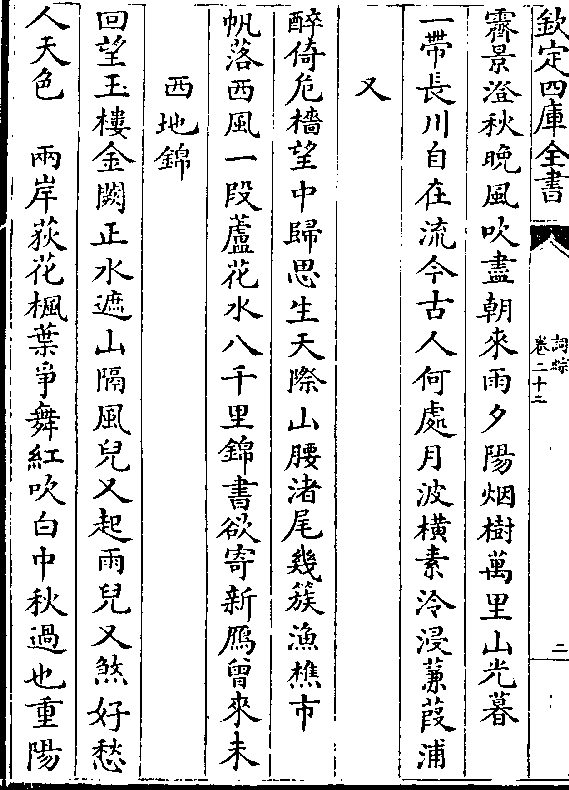 欽定四庫全書
詞綜
卷二十二
二
霽景澄秋晚風吹盡朝來雨夕陽烟樹萬里山光暮
一帶長川自在流今古人何處月波橫素冷浸蒹葭浦
又
醉倚危檣望中歸思生天際山腰渚尾幾簇漁樵市
帆落西風一段蘆花水八千里錦書欲寄新鴈曾來未
西地錦
回望玉樓金闕正水遮山隔風兒又起雨兒又煞好愁
人天色　兩岸荻花楓葉爭舞紅吹白中秋過也重陽